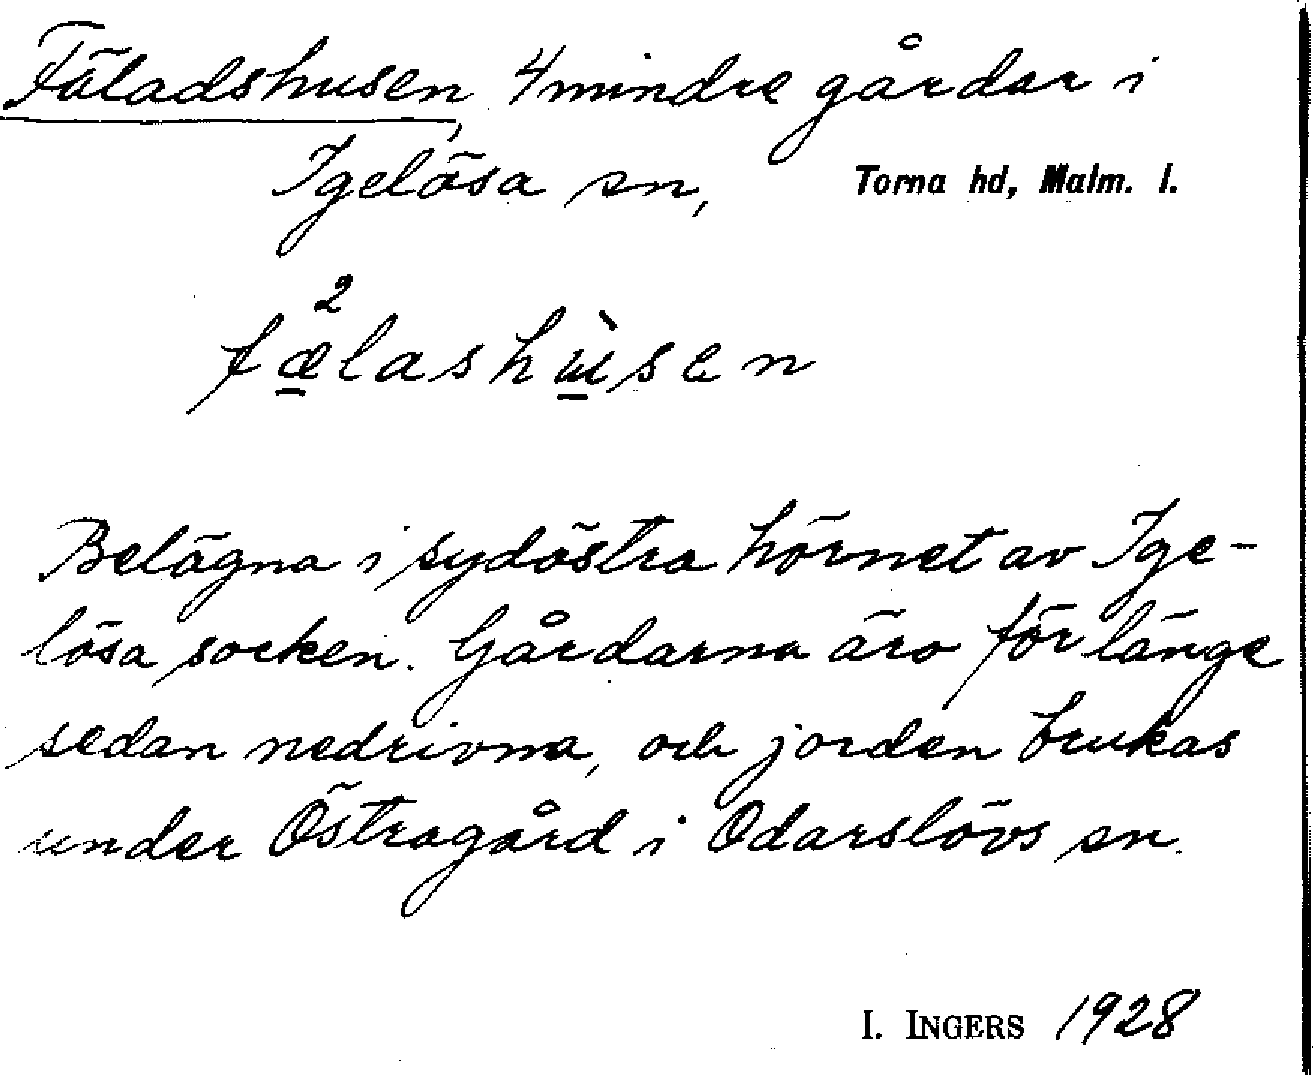 Fäladshusen, 4 mindre gårdar i
Igelösa sn, Torna hd, Malm. l.
fæ̲²lashù̲sen
Belägna i sydöstra hörnet av Ige-
lösa socken. Gårdarna äro för länge
sedan nedrivna, och jorden brukas
under Östragård i Odarslövs sn.
I. INGERS 1928